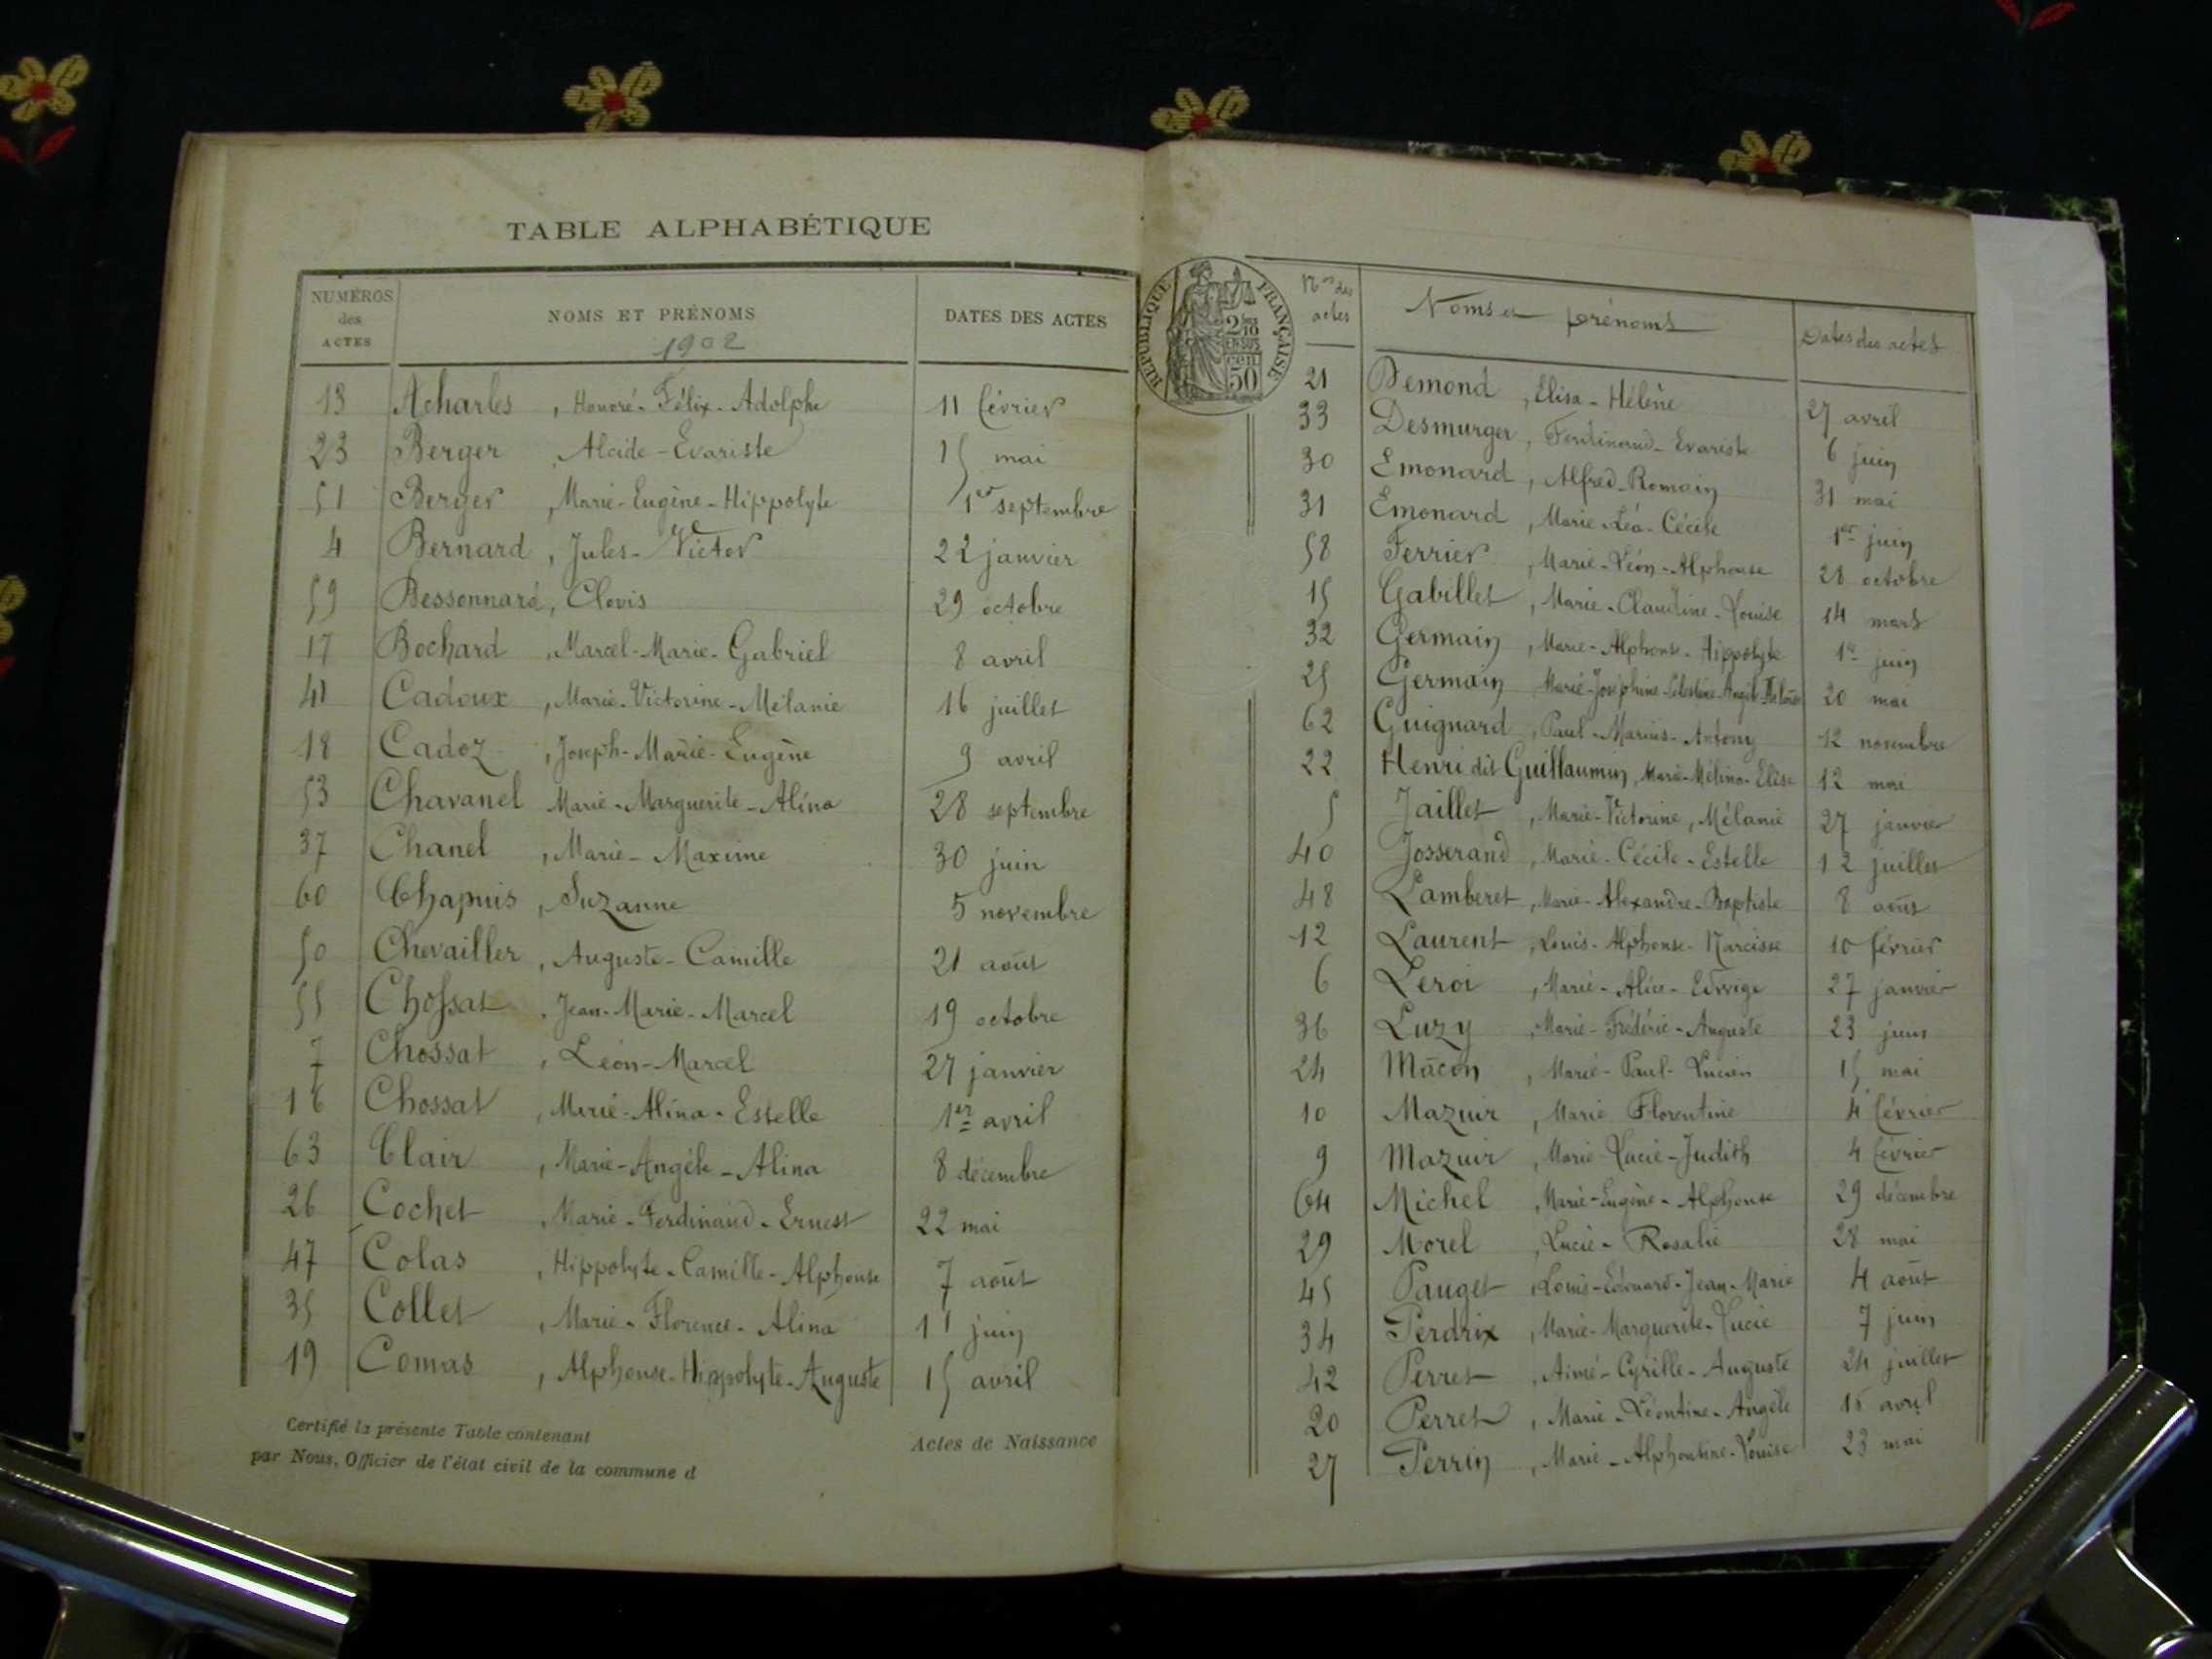 TABLE ALPHABÉTIQUE
NUMÉROS des ACTES NOMS ET PRÉNOMS 1902 DATES DES ACTES
13 Acharles, Honoré-Félix-Adolphe 11 février
23 Berger, Alcide-Evariste 15 mai
51 Berger, Marie-Eugène-Hippolyte 1er septembre
4 Bernard, Jules-Victor 22 janvier
59 Bessonnard, Clovis 29 octobre
17 Bochard, Marcel-Marie-Gabriel 8 avril
41 Cadoux, Marie-Victorine-Mélanie 16 juillet
18 Cadoz, Joseph-Marie-Eugène 9 avril
53 Chavanel Marie-Marguerite-Alina 28 septembre
37 Chanel, Marie-Maxime 30 juin
60 Chapuis, Suzanne 5 novembre
50 Chevailler, Auguste-Camille 21 août
55 Chossat, Jean-Marie-Marcel 19 octobre
7 Chossat, Léon-Marcel 27 janvier
16 Chossat, Marie-Alina-Estelle 1er avril
63 Clair, Marie-Angèle-Alina 8 décembre
26 Cochet, Marie-Ferdinand-Ernest 22 mai
47 Colas, Hippolyte-Camille-Alphonse 7 août
35 Collet, Marie-Florence-Alina 11 juin
19 Comas, Alphonse-Hippolyte-Auguste 15 avril
Certifié la présente Table contenant Actes de Naissance
par Nous, Officier de l'état civil de la commune d
RÉPUBLIQUE FRANÇAISE
2/10
EN SUS
50 cen
Nos des actes Noms et prénoms Dates des actes
21 Demond, Elisa-Hélène 27 avril
33 Desmurger, Ferdinand-Evariste 6 juin
30 Emonard, Alfred-Romain 31 mai
31 Emonard, Marie-Léa-Cécile 1er juin
58 Ferrier, Marie-Léon-Alphonse 28 octobre
15 Gabillet, Marie-Claudine-Louise 14 mars
32 Germain, Marie-Alphonse-Hippolyte 1er juin
25 Germain, Marie-Joséphine-Célestine 20 mai
62 Guignard, Paul-Marius-Antony 12 novembre
22 Henri dit Guillaumin, Marie-Mélina-Elise 12 mai
5 Jaillet, Marie-Victorine, Mélanie 27 janvier
40 Josserand, Marie-Cécile-Estelle 12 juillet
48 Lamberet, Marie-Alexandre-Baptiste 8 août
12 Laurent, Louis-Alphonse-Narcisse 10 février
6 Leroi, Marie-Alice-Edwige 27 janvier
36 Luzy, Marie-Frédéric-Auguste 23 juin
24 Mâcon, Marie-Paul-Lucien 15 mai
10 Mazuir, Marie Florentine 4 février
9 Mazuir, Marie-Lucie-Judith 4 février
64 Michel, Marie-Eugène-Alphonse 29 décembre
29 Morel, Lucie-Rosalie 28 mai
45 Pauget, Louis-Edouard-Jean-Marie 4 août
34 Perdrix, Marie-Marguerite-Lucie 7 juin
42 Perret, Aimé-Cyrille-Auguste 24 juillet
20 Perret, Marie-Léontine-Angèle 15 avril
27 Perrin, Marie-Alphontine-Louise 23 mai